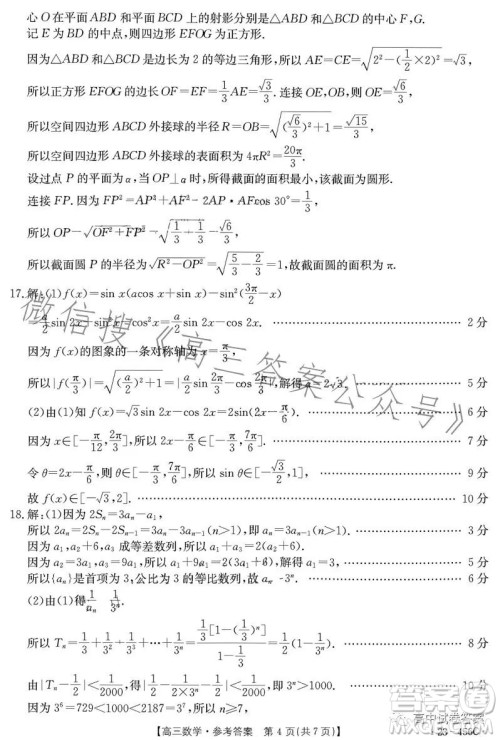 心 O 在平面 ABD 和平面 BCD 上的射影分别是△ABD 和△BCD 的中心 F,G.
记 E 为 BD 的中点,则四边形 EFOG 为正方形.
因为△ABD 和△BCD 是边长为 2 的等边三角形,所以 AE=CE=√(2²-(1/2×2)²)=√3,
所以正方形 EFOG 的边长 OF=EF=1/3 AE=√3/3. 连接 OE,OB,则 OE=√6/3,
所以空间四边形 ABCD 外接球的半径 R=OB=√((√6/3)²+1)=√15/3,
所以空间四边形 ABCD 外接球的表面积为 4πR²=20π/3.
设过点 P 的平面为 α,当 OP⊥α 时,所得截面的面积最小,该截面为圆形.
连接 FP. 因为 FP²=AP²+AF²-2AP·AFcos 30°=1/3,
所以 OP=√(OF²+FP²)=√(1/3+1/3)=√6/3,
所以截面圆 P 的半径为√(R²-OP²)=√(5/3-2/3)=1,故截面圆的面积为 π.
17.解:(1)f(x)=sin x(acos x+sin x)-sin²(3π/2-x)
=a/2 sin 2x+sin²x-cos²x=a/2 sin 2x-cos 2x. 2 分
因为 f(x)的图象的一条对称轴为 x=π/3,
所以|f(π/3)|=√((a/2)²+1)=|√3/4 a+1/2|,解得 a=2√3. 5 分
(2)由(1)知 f(x)=√3sin 2x-cos 2x=2sin(2x-π/6). 6 分
因为 x∈[-π/12,2π/3],所以 2x-π/6∈[-π/3,7π/6]. 7 分
令 θ=2x-π/6,则 θ∈[-π/3,7π/6],所以 sin θ∈[-√3/2,1], 9 分
故 f(x)∈[-√3,2]. 10 分
18.解:(1)因为 2Sₙ=3aₙ-a₁,
所以 2aₙ=2Sₙ-2Sₙ₋₁=3aₙ-3aₙ₋₁(n>1),即 aₙ=3aₙ₋₁(n>1). 3 分
因为 a₁,a₂+6,a₃ 成等差数列,所以 a₁+a₃=2(a₂+6). 4 分
因为 a₂=3a₁,a₃=9a₁,所以 a₁+9a₁=2(3a₁+6),解得 a₁=3. 5 分
所以{aₙ}是首项为 3,公比为 3 的等比数列,故 aₙ=3ⁿ. 6 分
(2)由(1)得 1/aₙ=1/3ⁿ.
所以 Tₙ=1/3+1/3²+1/3³+…+1/3ⁿ=1/3[1-(1/3)ⁿ]/(1-1/3)=1/2(1-1/3ⁿ). 8 分
由|Tₙ-1/2|<1/2000,得|-1/2×1/3ⁿ|<1/2000,即 3ⁿ>1000. 10 分
因为 3⁶=729<1000<3⁷=2187,所以
【高三数学·参考答案 第 4 页(共 7 页)】
微信搜《高三答案公众号》
答案圈
高中试卷答案